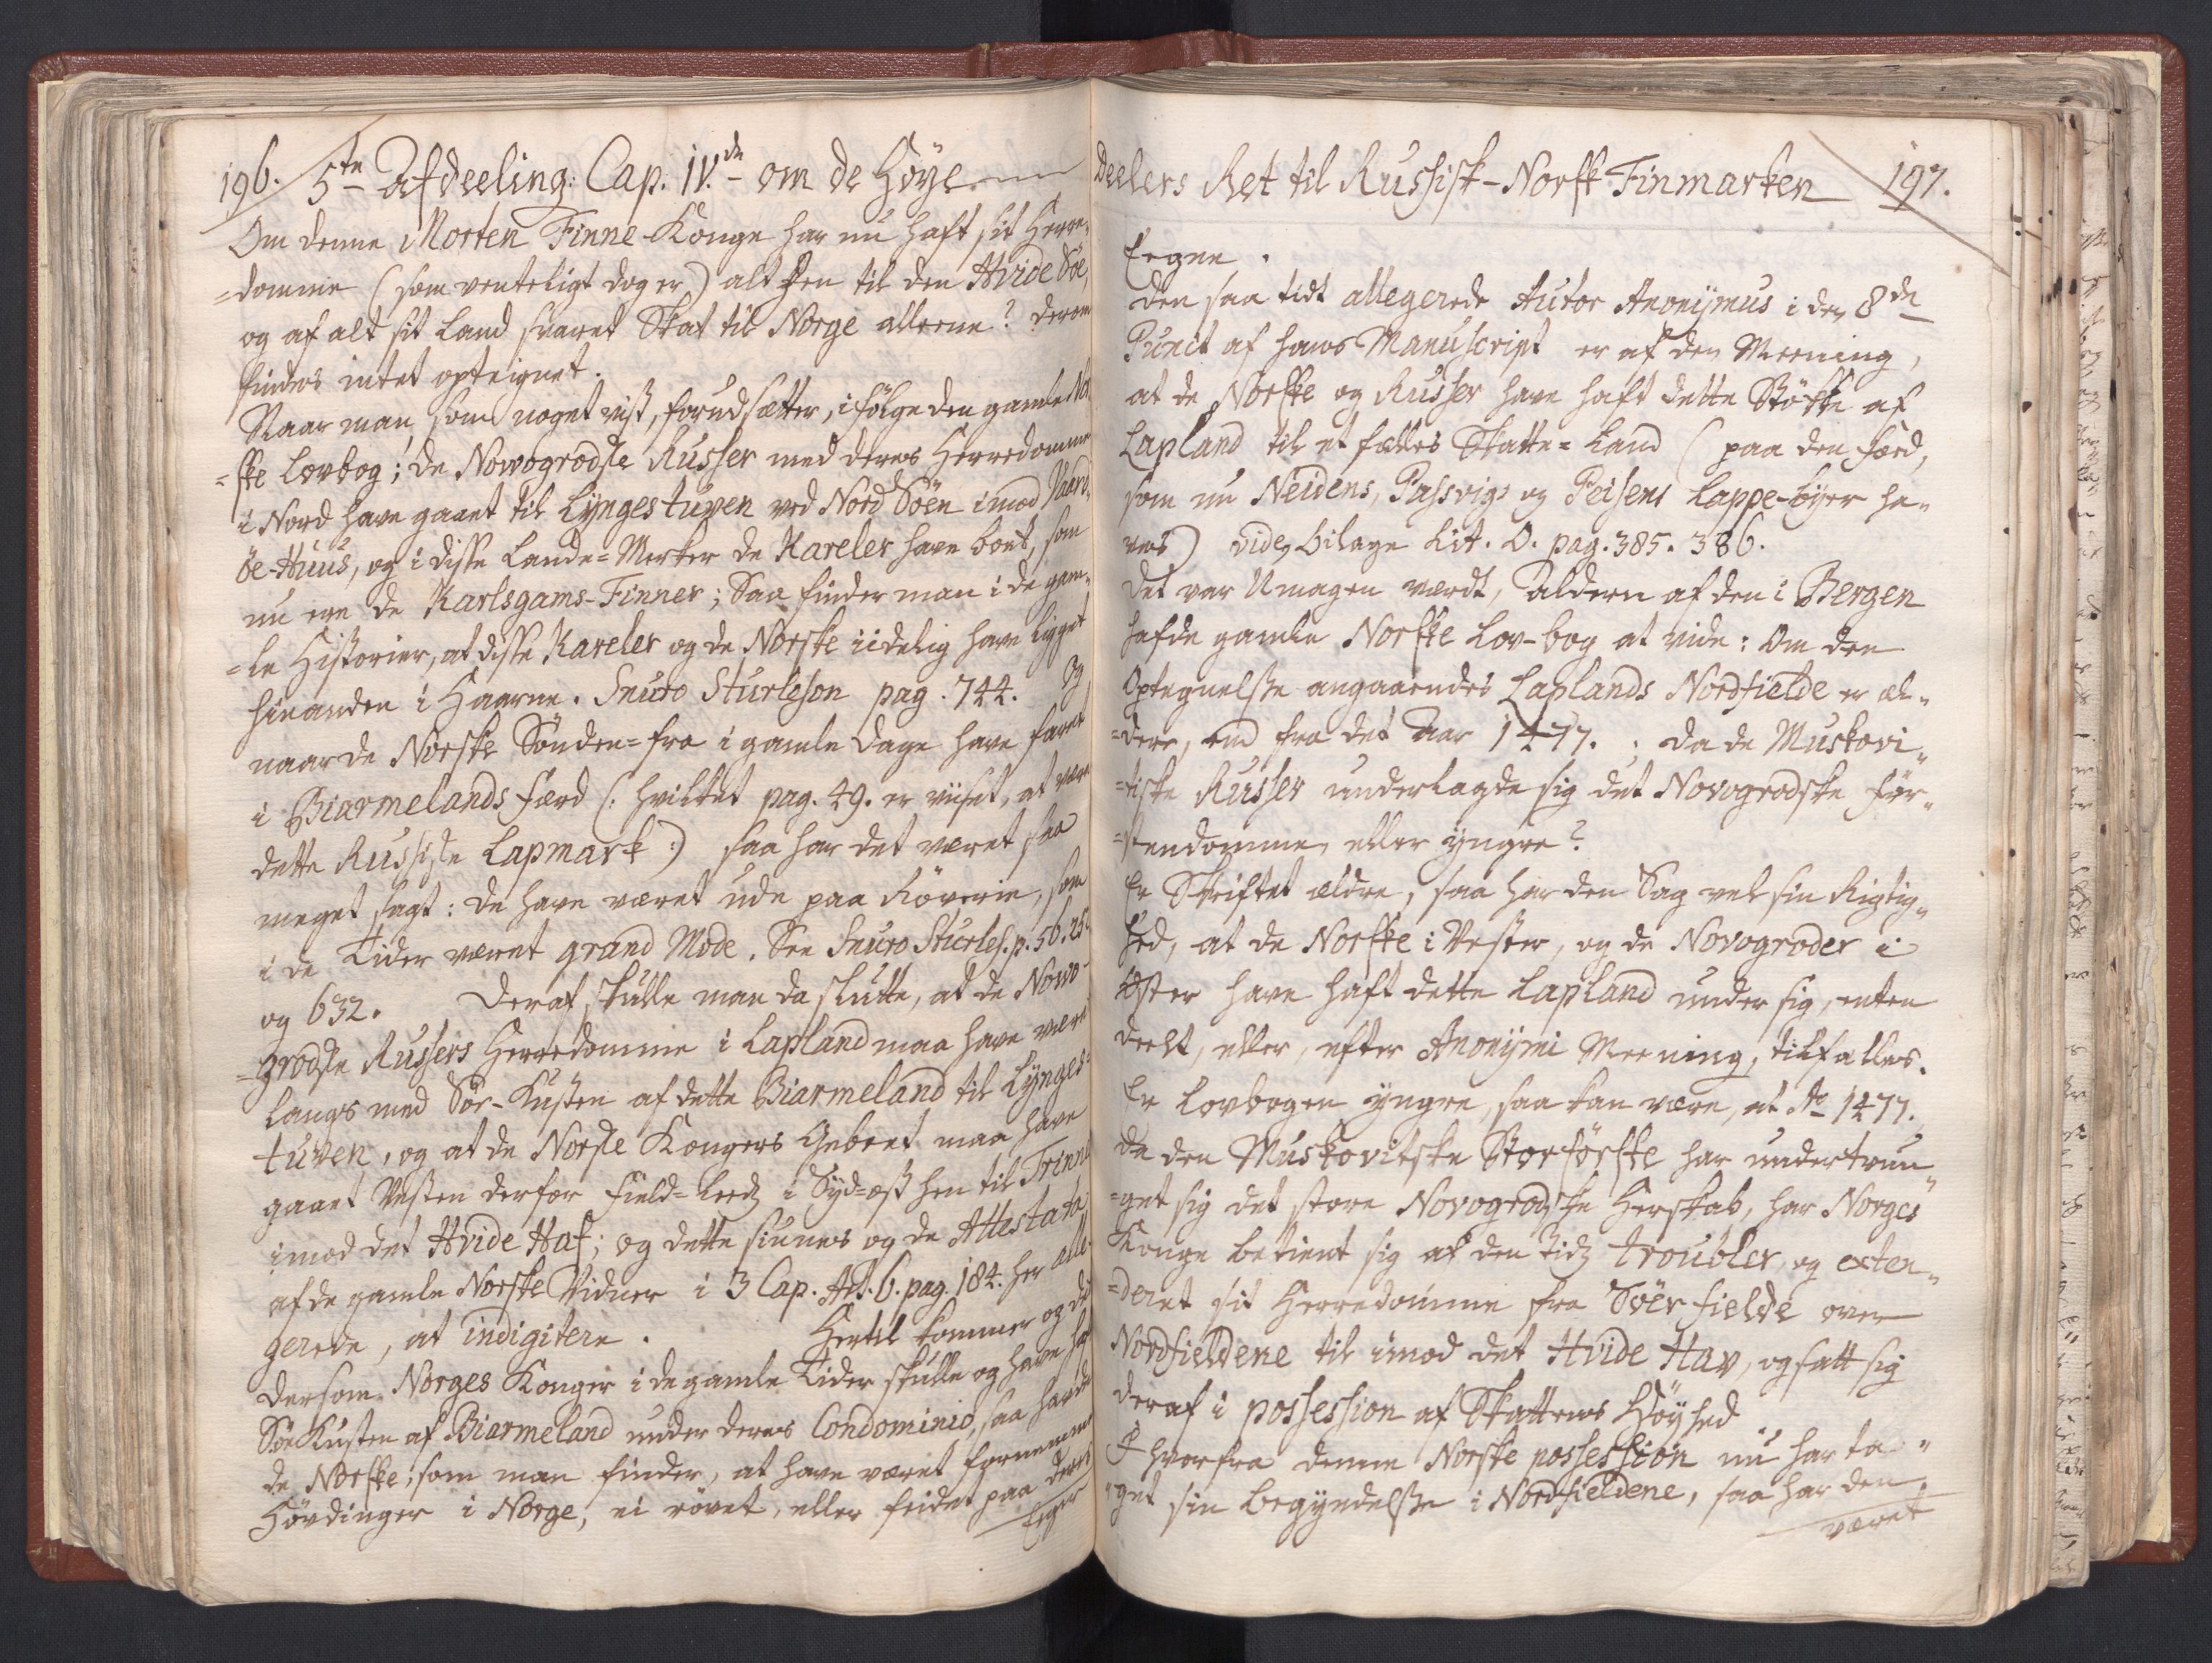 196. 5te Afdeeling: Cap. IV.de om de Höye
Om denne Morten Finne-Konge har nu haft sit Herre-
=domme (som venteligt dog er) alt hen til den Hvide Söe,
og af alt sit Land svaret Skat til Norge alleene? derom
findes intet opteignet.
Naar man, som noget vist, forudsætter, i fölge den gamle Nor
=ske Lovbog; de Nowogrodske Russer med deres Herredomme
i Nord have gaaet til Lyngestuven ved Nord Söen imod Vaard-
öe-Huus, og i disse Lande-Merker de Kareler have boet, som
nu ere de Karlsgams-Finner; Saa finder man i de gam-
=le Historier, at disse Kareler og de Norske iidelig have ligget
hinanden i Haarene. Snuro Sturleson pag. 744. Og
naar de Norske Sönden-fra i gamle Dage have faret
i Biarmelands færd (: hvilket pag. 49. er viiset, at være
dette Russiske Lapmark :) saa har det været saa
meget sagt: de have været ude paa Röverie, som
i de Tider været grand Mode. See Snuro Sturles. p. 56. 252
og 632. Deraf skulle man da slutte, at de Nowo-
=grodske Russers Herredomme i Lapland maa have været
langs med Söe-Kusten af dette Biarmeland til Lynges-
tuven, og at de Norske Kongers Gebeet maa have
gaaet Vesten derfor Field-Leedz i Syd-ost hen til Trinnes
imod det Hvide Haf; og dette siunes og de Attestata
af de gamle Norske Vidner i 3 Cap. Art. 6. pag. 184. her alle-
gerede, at indigitere. Hertil kommer og det
dersom Norges Konger i de gamle Tider skulle og have haft
Söe Kusten af Biarmeland under deres Condominio, saa havde
de Norske, som man finder, at have været fornemme
Hövdinger i Norge, ei rövet, eller feidet paa deres
Eegne
Deelers Ret til Russisk-Norsk Finmarken 197.
Eegne.
Den saa tidt allegerede Autor Anonymus i den 8de
Punct af hans Manuscript er af den Meening,
at de Norske og Russer have haft dette Stökke af
Lapland til et fælles Skatte-Land (paa den Fæed,
som nu Neidens, Passvigs og Peisens Lappe-byer ha-
ves) vide, bilage Lit. O. pag. 385. 386.
Det var Umagen værdt, Alderen af den i Bergen
hafde gamle Norske Lov-bog at vide: Om den
Optegnelsse angaaendes Laplands Nordfielde er æl-
=dere, end fra det Aar 1477. da de Muskovi-
=tiske Russer underlagde sig det Novogrodske För-
=stendomme, eller yngre?
Er Skriftet ældre, saa har den Sag vel sin Rigtig-
hed, at de Norske i Vester, og de Novogroder i
Öster have haft dette Lapland under sig, enten
deelt, eller, efter Anonymi Meening, tilfælles.
Er Lovbogen yngre, saa kan være, at Ao 1477.
da den Muskovitske Storförste har undertvun-
=get sig det store Novogrodske Herskab, har Norges
Konge betient sig af den Tidz troubler, og exten-
=deret sit Herredomme fra Söer fielde over
Nordfieldene til imod det Hvide Hav, og satt sig
deraf i possession af Skattens Höyhed
I hvorfra denne Norske possession nu har ta-
get sin begyndelsse i Nordfieldene, saa har den
været